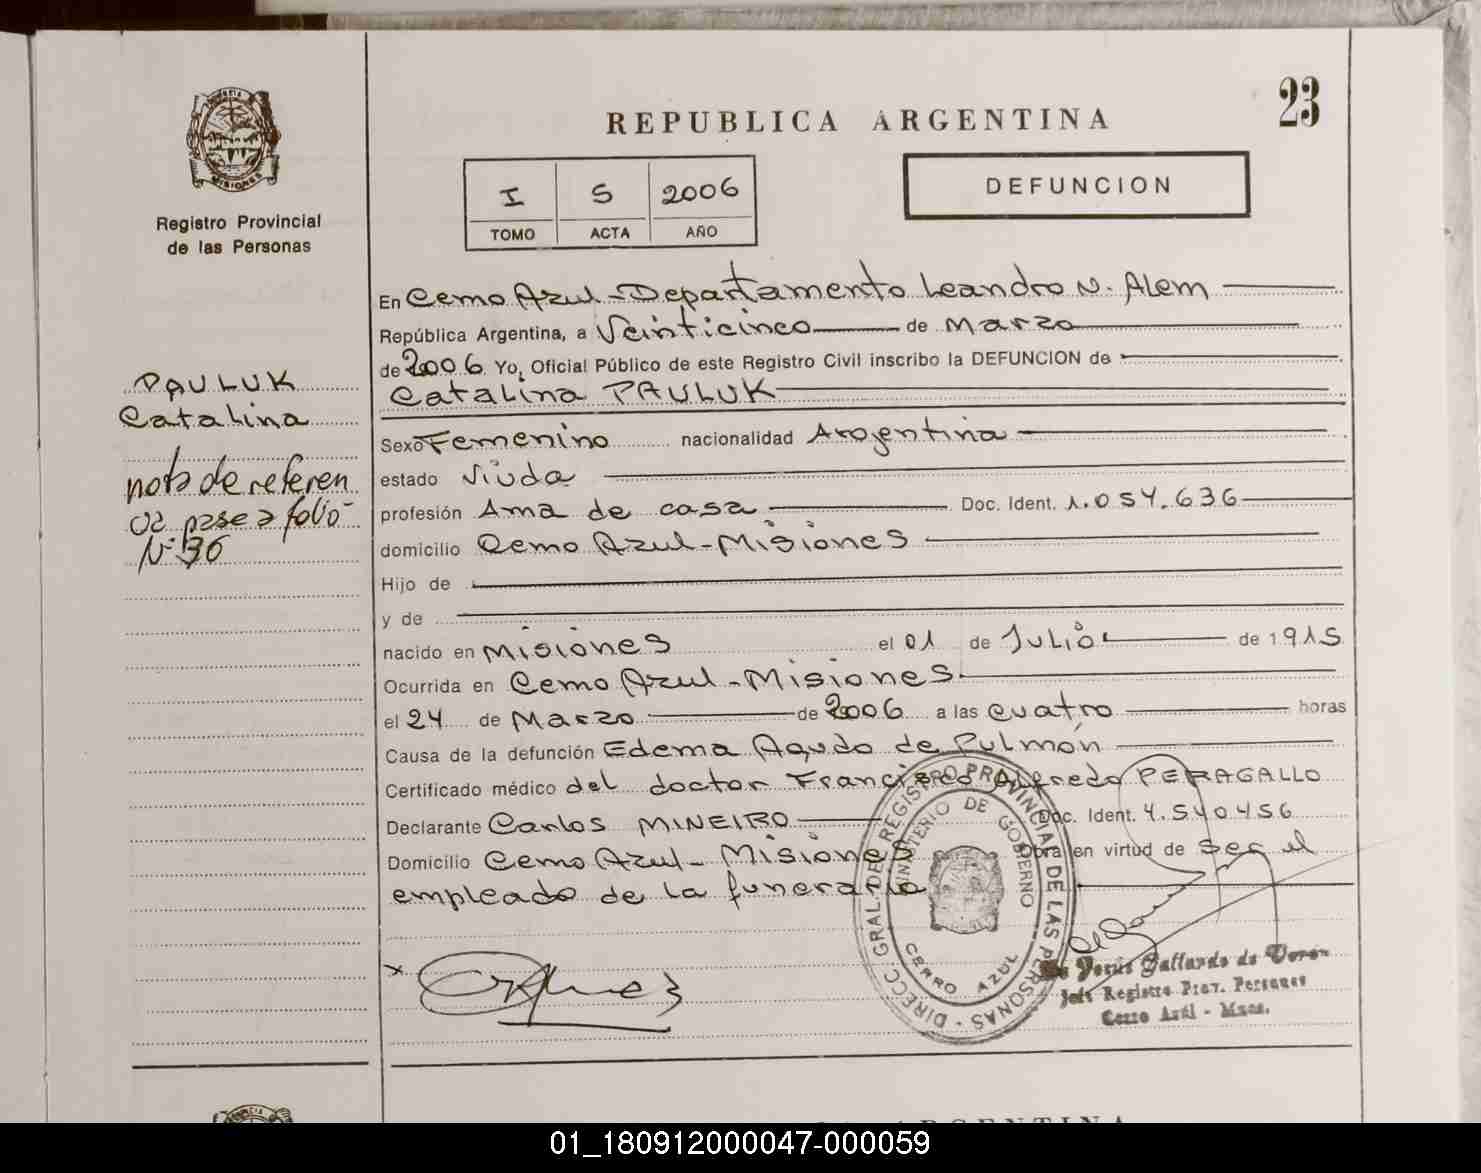 23
REPUBLICA ARGENTINA
MISIONES
Registro Provincial
de las Personas
I S 2006
TOMO ACTA AÑO
DEFUNCION
PAULUK
Catalina
nota de referen
cia pase a folio
Nº 36
En Cerro Azul - Departamento Leandro N. Alem
República Argentina, a Veinticinco de Marzo
de 2006 Yo, Oficial Público de este Registro Civil inscribo la DEFUNCION de
Catalina PAULUK
Sexo Femenino nacionalidad Argentina
estado Viuda
profesión Ama de casa Doc. Ident. 1.054.636
domicilio Cerro Azul - Misiones
Hijo de
y de
nacido en Misiones el 01 de Julio de 1915
Ocurrida en Cerro Azul - Misiones
el 24 de Marzo de 2006 a las cuatro horas
Causa de la defunción Edema Agudo de Pulmón
Certificado médico del doctor Francisco Alfredo PERAGALLO
Declarante Carlos MINEIRO Doc. Ident. 4.540456
Domicilio Cerro Azul - Misiones Obra en virtud de ser el
empleado de la funeraria
DIRECC. GRAL. DE REGISTRO PROVINCIAL DE LAS PERSONAS
MINISTERIO DE GOBIERNO
CERRO AZUL
Jesús Gallardo de
Jefe Registro Prov. Personas
Cerro Azul - Mnes.
ARGENTINA
01_180912000047-000059